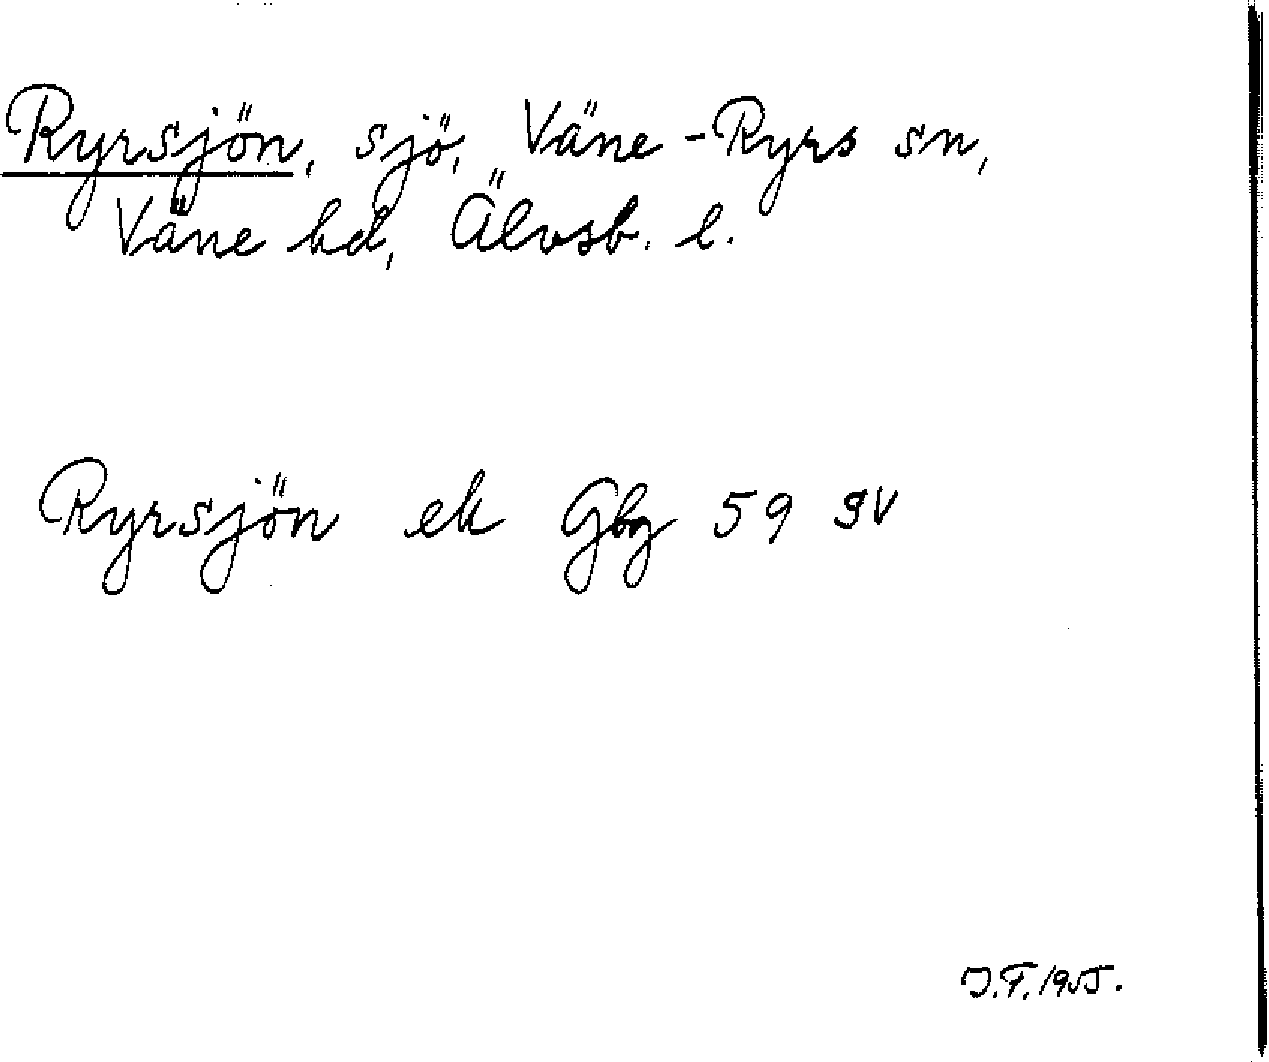 Ryrsjön, sjö, Väne-Ryrs sn,
Väne hd, Älvsb. l.
Ryrsjön ek Gbg 59 SV
J.F. 1955.